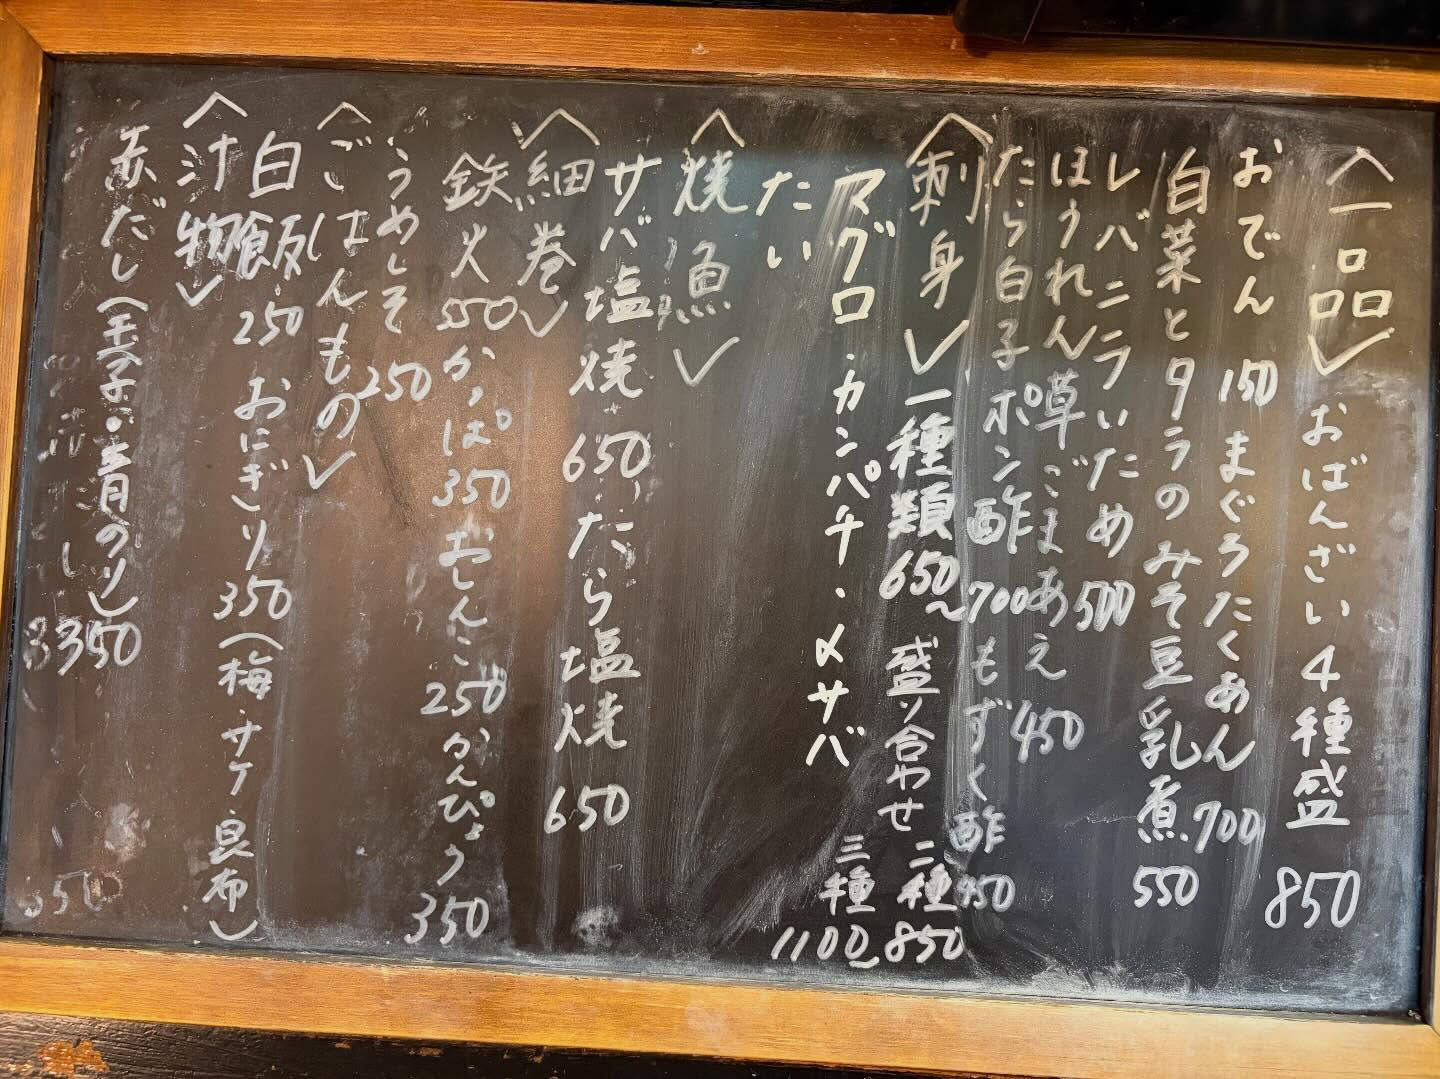 〈一品〉おばんざい4種盛 850
おでん 150 まぐろたくあん 700
白菜とタラのみそ豆乳煮 550
レバニラいため 500
ほうれん草ごまあえ 450
たら白子ポン酢 700 もずく酢 450
〈刺身〉一種類 650〜 盛り合わせ 二種 850
マグロ・カンパチ・〆サバ 三種 1100〜
たい
〈焼魚〉
サバ塩焼 650 たら塩焼 650
〈細巻〉
鉄火 550 かっぱ 350 おしんこ 250 かんぴょう 350
うめしそ 250
〈ごはんもの〉
白飯 250 おにぎり 350 (梅・サケ・昆布)
〈汁物〉
赤だし(玉子・青のり) 350